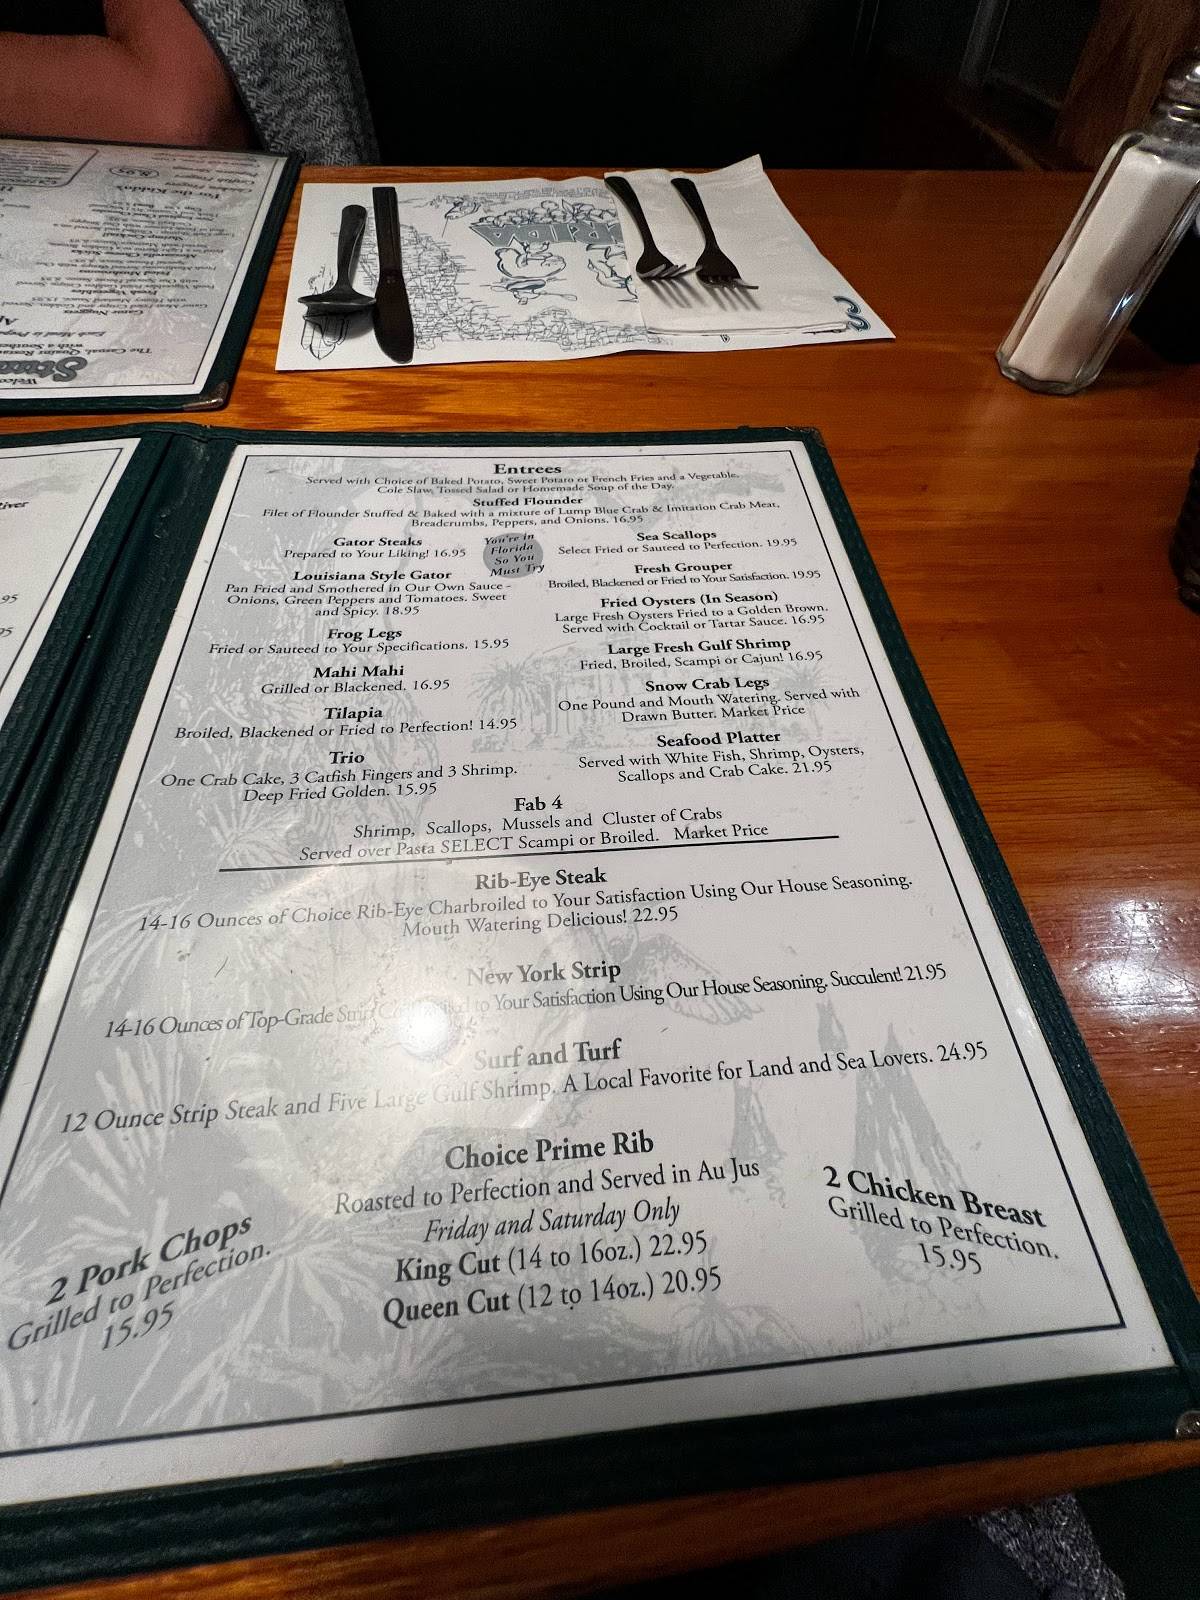 Entrees
Served with Choice of Baked Potato, Sweet Potato or French Fries and a Vegetable.
Cole Slaw, Tossed Salad or Homemade Soup of the Day.
Stuffed Flounder
Filet of Flounder Stuffed & Baked with a mixture of Lump Blue Crab & Imitation Crab Meat,
Breadcrumbs, Peppers, and Onions. 16.95
Gator Steaks
Prepared to Your Liking! 16.95
You're in
Florida
So You
Must Try
Louisiana Style Gator
Pan Fried and Smothered in Our Own Sauce -
Onions, Green Peppers and Tomatoes. Sweet
and Spicy. 18.95
Frog Legs
Fried or Sauteed to Your Specifications. 15.95
Mahi Mahi
Grilled or Blackened. 16.95
Tilapia
Broiled, Blackened or Fried to Perfection! 14.95
Trio
One Crab Cake, 3 Catfish Fingers and 3 Shrimp.
Deep Fried Golden. 15.95
Sea Scallops
Select Fried or Sauteed to Perfection. 19.95
Fresh Grouper
Broiled, Blackened or Fried to Your Satisfaction. 19.95
Fried Oysters (In Season)
Large Fresh Oysters Fried to a Golden Brown.
Served with Cocktail or Tartar Sauce. 16.95
Large Fresh Gulf Shrimp
Fried, Broiled, Scampi or Cajun! 16.95
Snow Crab Legs
One Pound and Mouth Watering. Served with
Drawn Butter. Market Price
Seafood Platter
Served with White Fish, Shrimp, Oysters,
Scallops and Crab Cake. 21.95
Fab 4
Shrimp, Scallops, Mussels and Cluster of Crabs
Served over Pasta SELECT Scampi or Broiled. Market Price
Rib-Eye Steak
14-16 Ounces of Choice Rib-Eye Charbroiled to Your Satisfaction Using Our House Seasoning.
Mouth Watering Delicious! 22.95
New York Strip
14-16 Ounces of Top-Grade Strip to Your Satisfaction Using Our House Seasoning. Succulent! 21.95
Surf and Turf
12 Ounce Strip Steak and Five Large Gulf Shrimp. A Local Favorite for Land and Sea Lovers. 24.95
Choice Prime Rib
Roasted to Perfection and Served in Au Jus
Friday and Saturday Only
King Cut (14 to 16oz.) 22.95
Queen Cut (12 to 14oz.) 20.95
2 Pork Chops
Grilled to Perfection.
15.95
2 Chicken Breast
Grilled to Perfection.
15.95